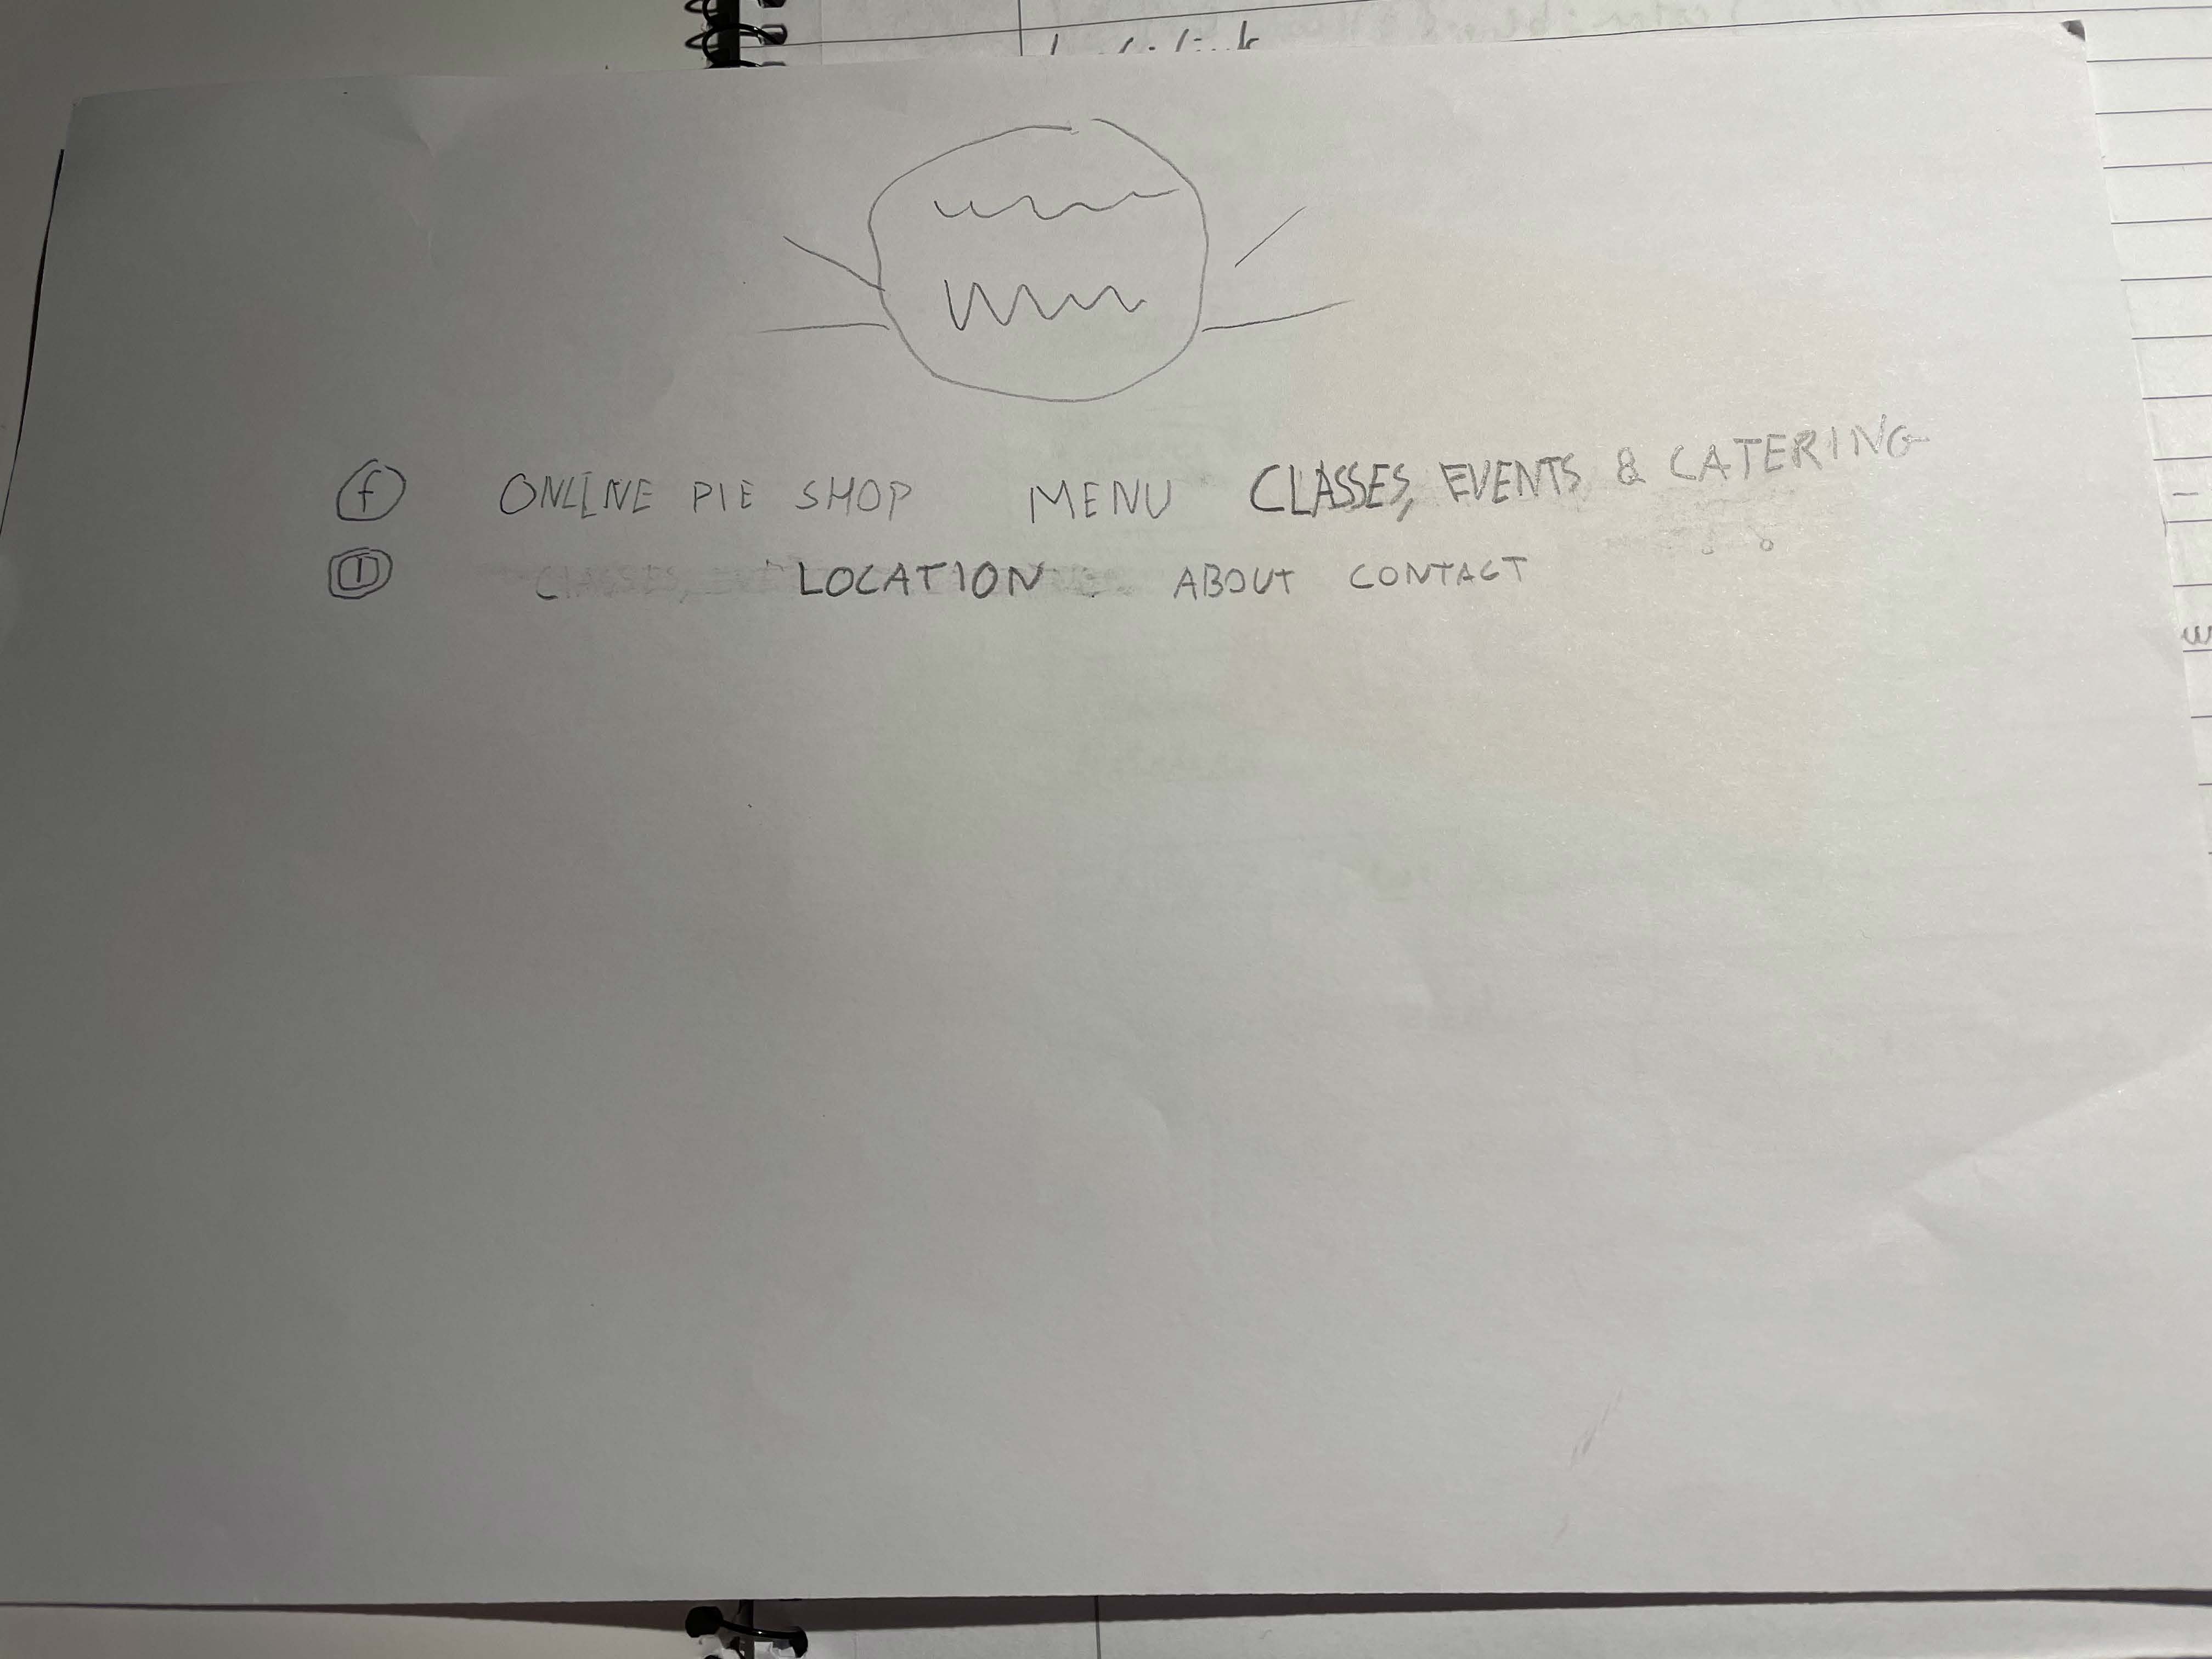 f ONLINE PIE SHOP MENU CLASSES, EVENTS & CATERING
CLASSES, LOCATION ABOUT CONTACT